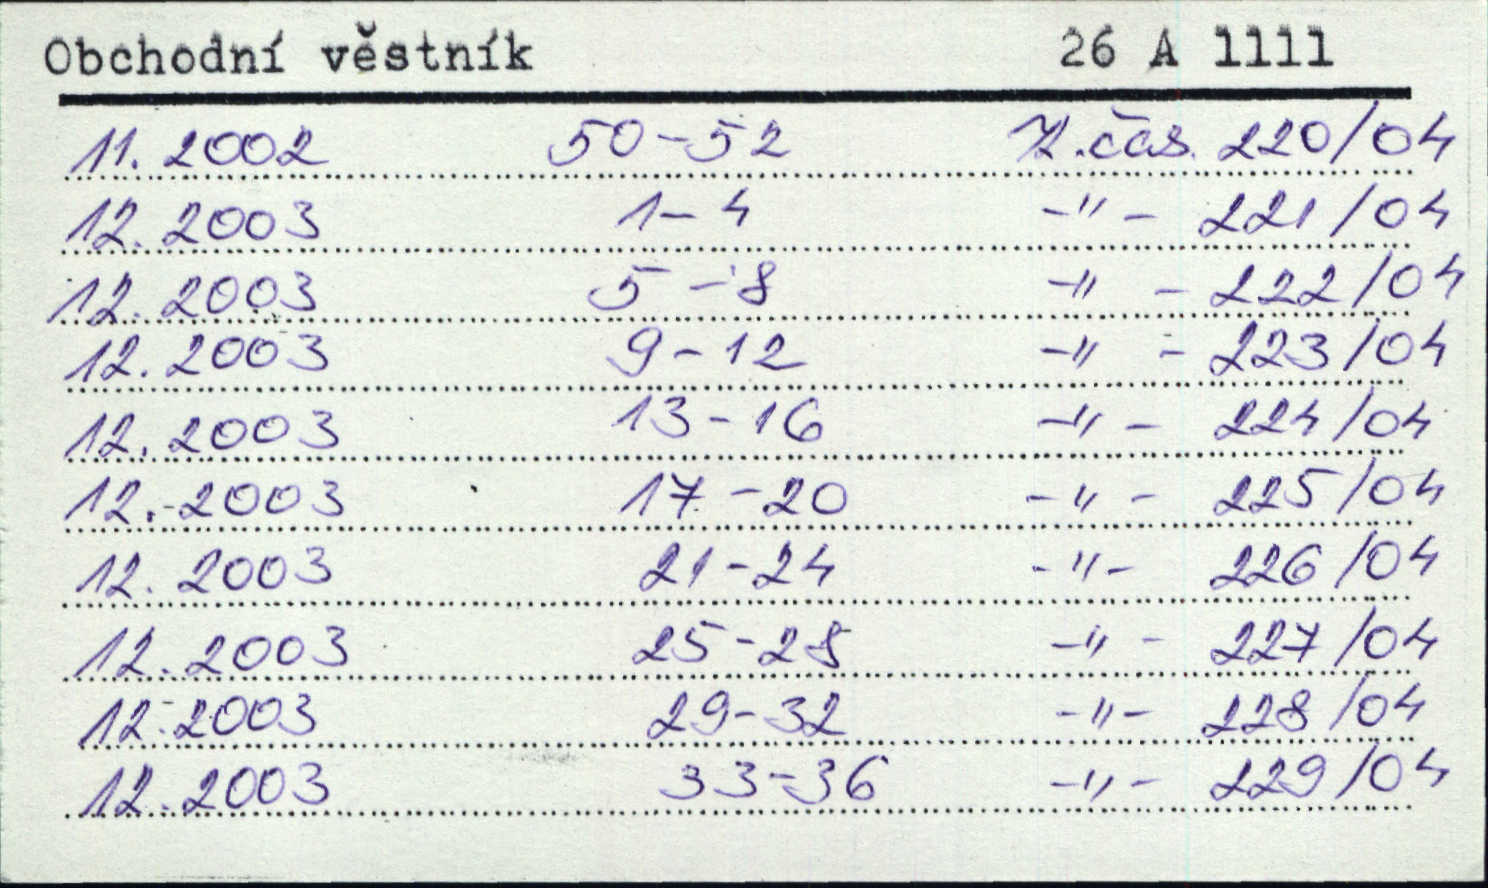 Obchodní věstník 26 A 1111
11. 2002 50-52 Z.čas. 220/04
12. 2003 1-4 -"- 221/04
12. 2003 5-8 -"- 222/04
12. 2003 9-12 -"- 223/04
12. 2003 13-16 -"- 224/04
12. 2003 17-20 -"- 225/04
12. 2003 21-24 -"- 226/04
12. 2003 25-28 -"- 227/04
12. 2003 29-32 -"- 228/04
12. 2003 33-36 -"- 229/04